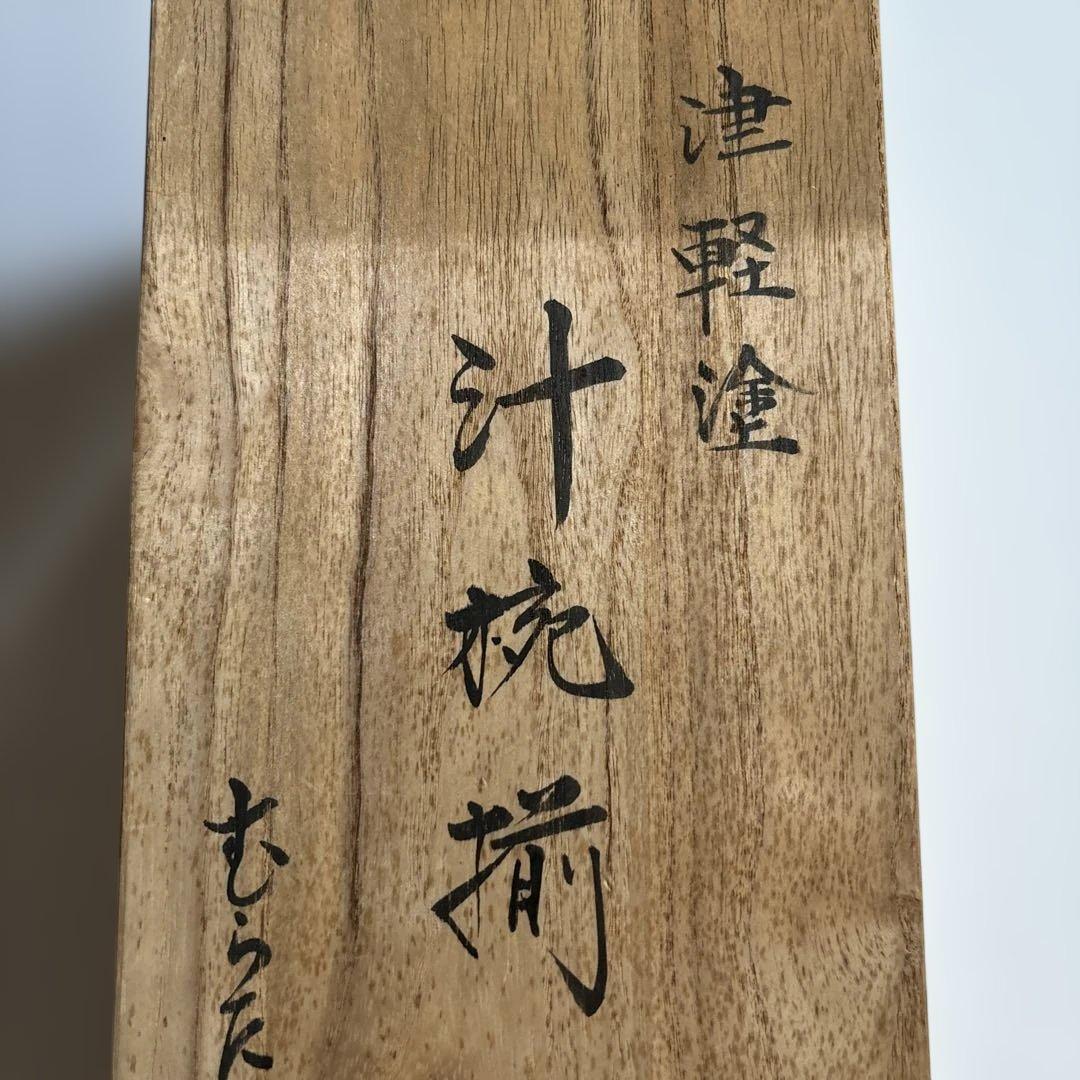 津軽塗
汁椀揃
むらた